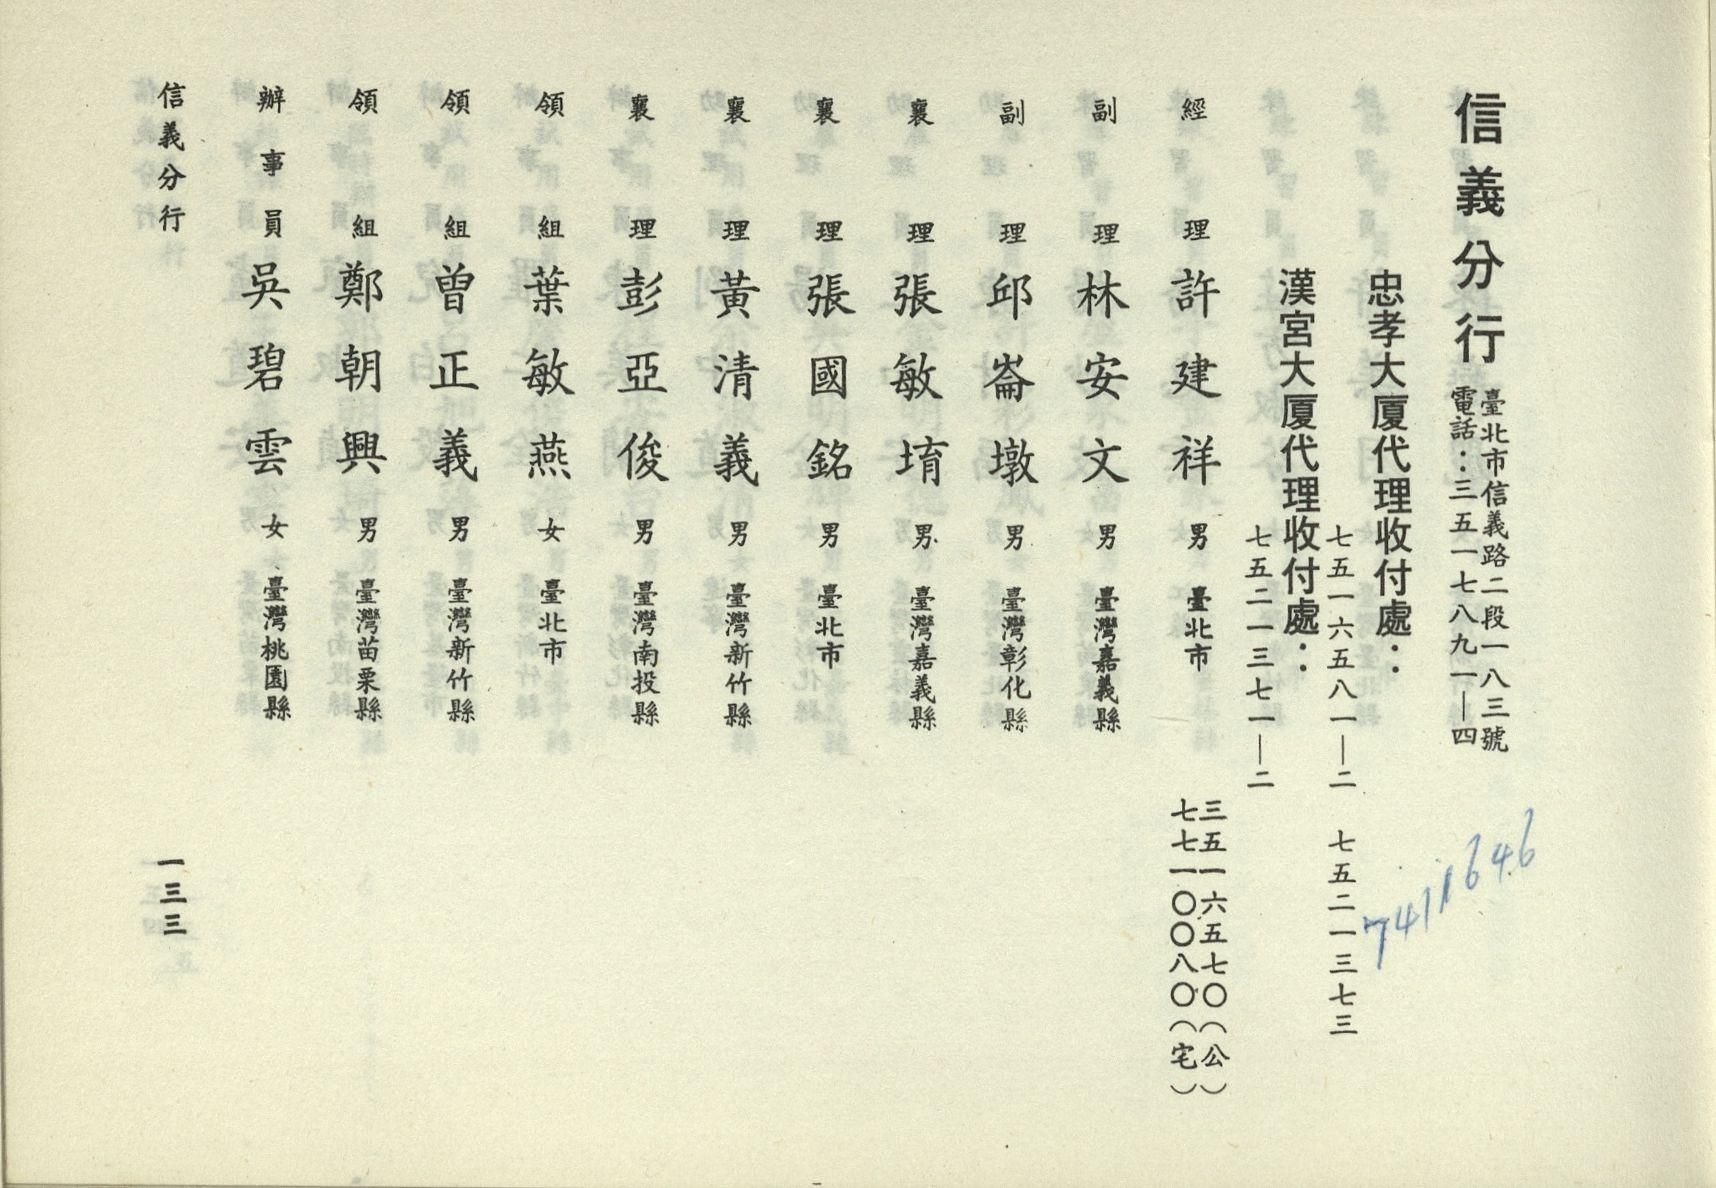 信義分行
臺北市信義路二段一八三號
電話：三五一七八九一—四
忠孝大厦代理收付處：
七五一六五八一—二　七五二一三七三
漢宮大厦代理收付處：
七五二一三七一—二
經理 許建祥 男 臺北市 三五一六五七〇（公）
七七一〇〇八〇（宅）
副理 林安文 男 臺灣嘉義縣
副理 邱崙墩 男 臺灣彰化縣
襄理 張敏堉 男 臺灣嘉義縣
襄理 張國銘 男 臺北市
襄理 黃清義 男 臺灣新竹縣
襄理 彭亞俊 男 臺灣南投縣
領組 葉敏燕 女 臺北市
領組 曾正義 男 臺灣新竹縣
領組 鄭朝興 男 臺灣苗栗縣
辦事員 吳碧雲 女 臺灣桃園縣
信義分行
一三三
7411646